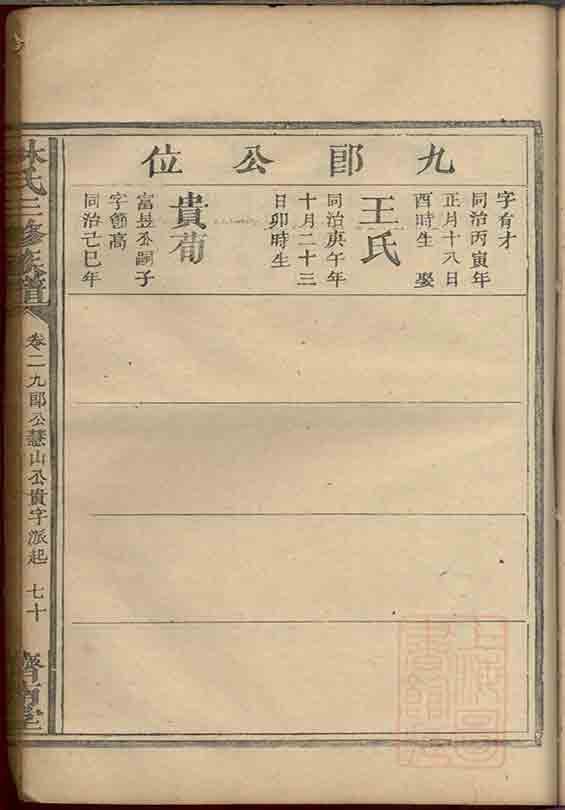 九郎公位
字有才
同治丙寅年
正月十八日
酉時生 娶
王氏
同治庚午年
十月二十三
日卯時生
貴荀
富昱公嗣子
字節高
同治己巳年
林氏三修族譜
卷二九郎公慧山公貴字派起 七十
濟南堂
上海圖書館藏